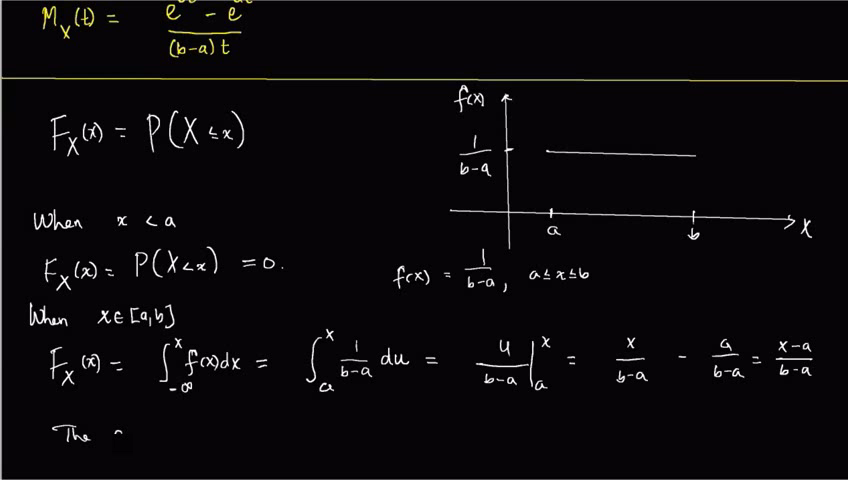 M_X(t) = e^{bt} - e^{at} / (b-a)t
F_X(x) = P(X ≤ x)
f(x)
1/(b-a)
a b x
When x < a
F_X(x) = P(X < x) = 0.
f(x) = 1/(b-a), a ≤ x ≤ b
When x ∈ [a,b]
F_X(x) = ∫_{-∞}^{x} f(x)dx = ∫_{a}^{x} 1/(b-a) du = u/(b-a) |_{a}^{x} = x/(b-a) - a/(b-a) = (x-a)/(b-a)
The